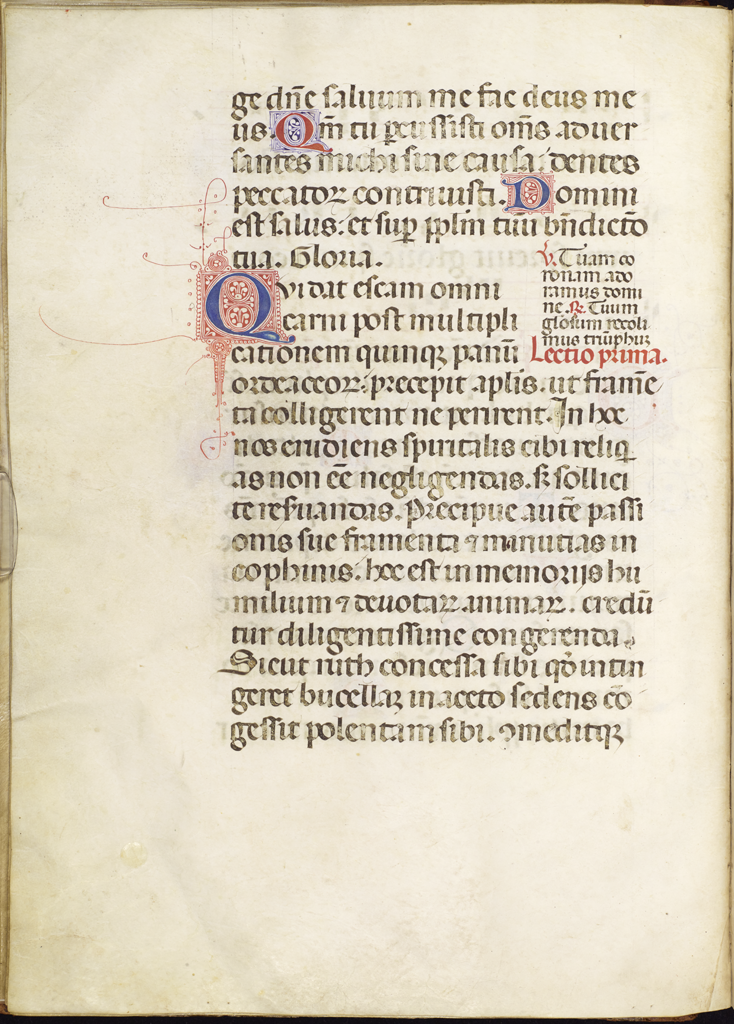 ge dñe saluum me fac deus me
us. Qm̃ tu percussisti om̃s aduer
santes michi sine causa: dentes
peccatoꝝ contriuisti. Domini
est salus: et sup̱ pp̱lm tuũ bñdictõ
tua. Gloria.
Qui dat escam omni
carni post multipli
cationem quinqꝫ panuũ
ordeaceoꝝ: precepit aplis. ut fragm̃e
ta colligerent ne perirent. In hoc
nos erudiens spiritalis cibi reliq
as non eẽ negligendas. s̃ sollici
te reseruandas. Precipue autẽ passi
onis sue framenta ⁊ minutias in
cophinis. hoc est in memorijs hu
milium ⁊ deuotaꝝ animaꝝ. credũ
tur diligentissime congerenda.
Sicut ruth concessa sibi qõ intin
geret bucellaꝫ in aceto sedens cõ
gessit polentam sibi. ꝯmeditqꝫ
℣. Tuam co
ronam ado
ramus domi
ne. ℟. Tuum
glosum recoli
mus triũphuꝫ
Lectio prima.